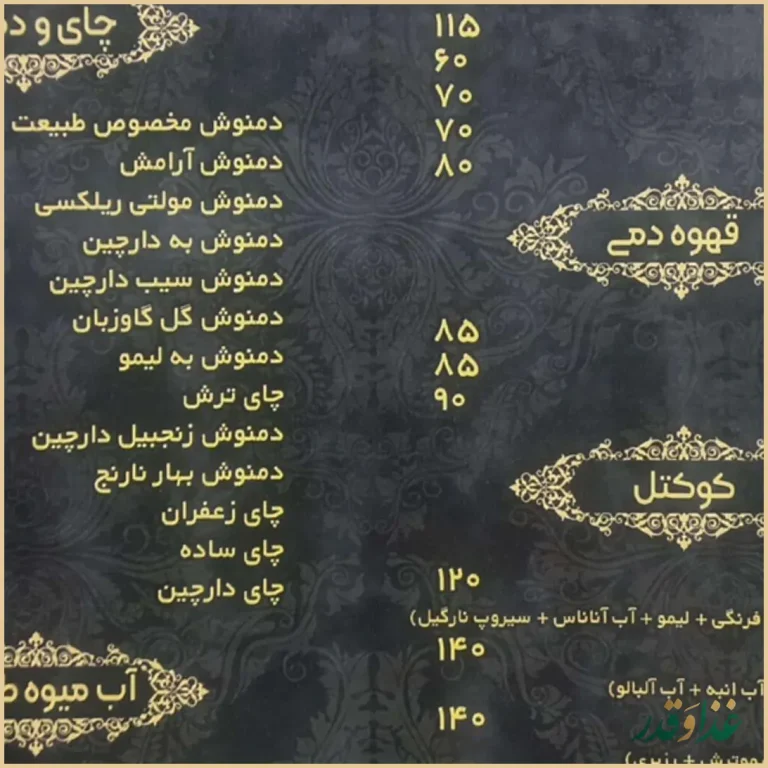 ۱۱۵
۶۰
۷۰
۷۰
۸۰
قهوه دمی
۸۵
۸۵
۹۰
کوکتل
۱۲۰
فرنگی + لیمو + آب آناناس + سیروپ نارگیل)
۱۴۰
آب انبه + آب آلبالو)
۱۴۰
چای و
دمنوش مخصوص طبیعت
دمنوش آرامش
دمنوش مولتی ریلکسی
دمنوش به دارچین
دمنوش سیب دارچین
دمنوش گل گاوزبان
دمنوش به لیمو
چای ترش
دمنوش زنجبیل دارچین
دمنوش بهار نارنج
چای زعفران
چای ساده
چای دارچین
آب میوه
غذاوقدر